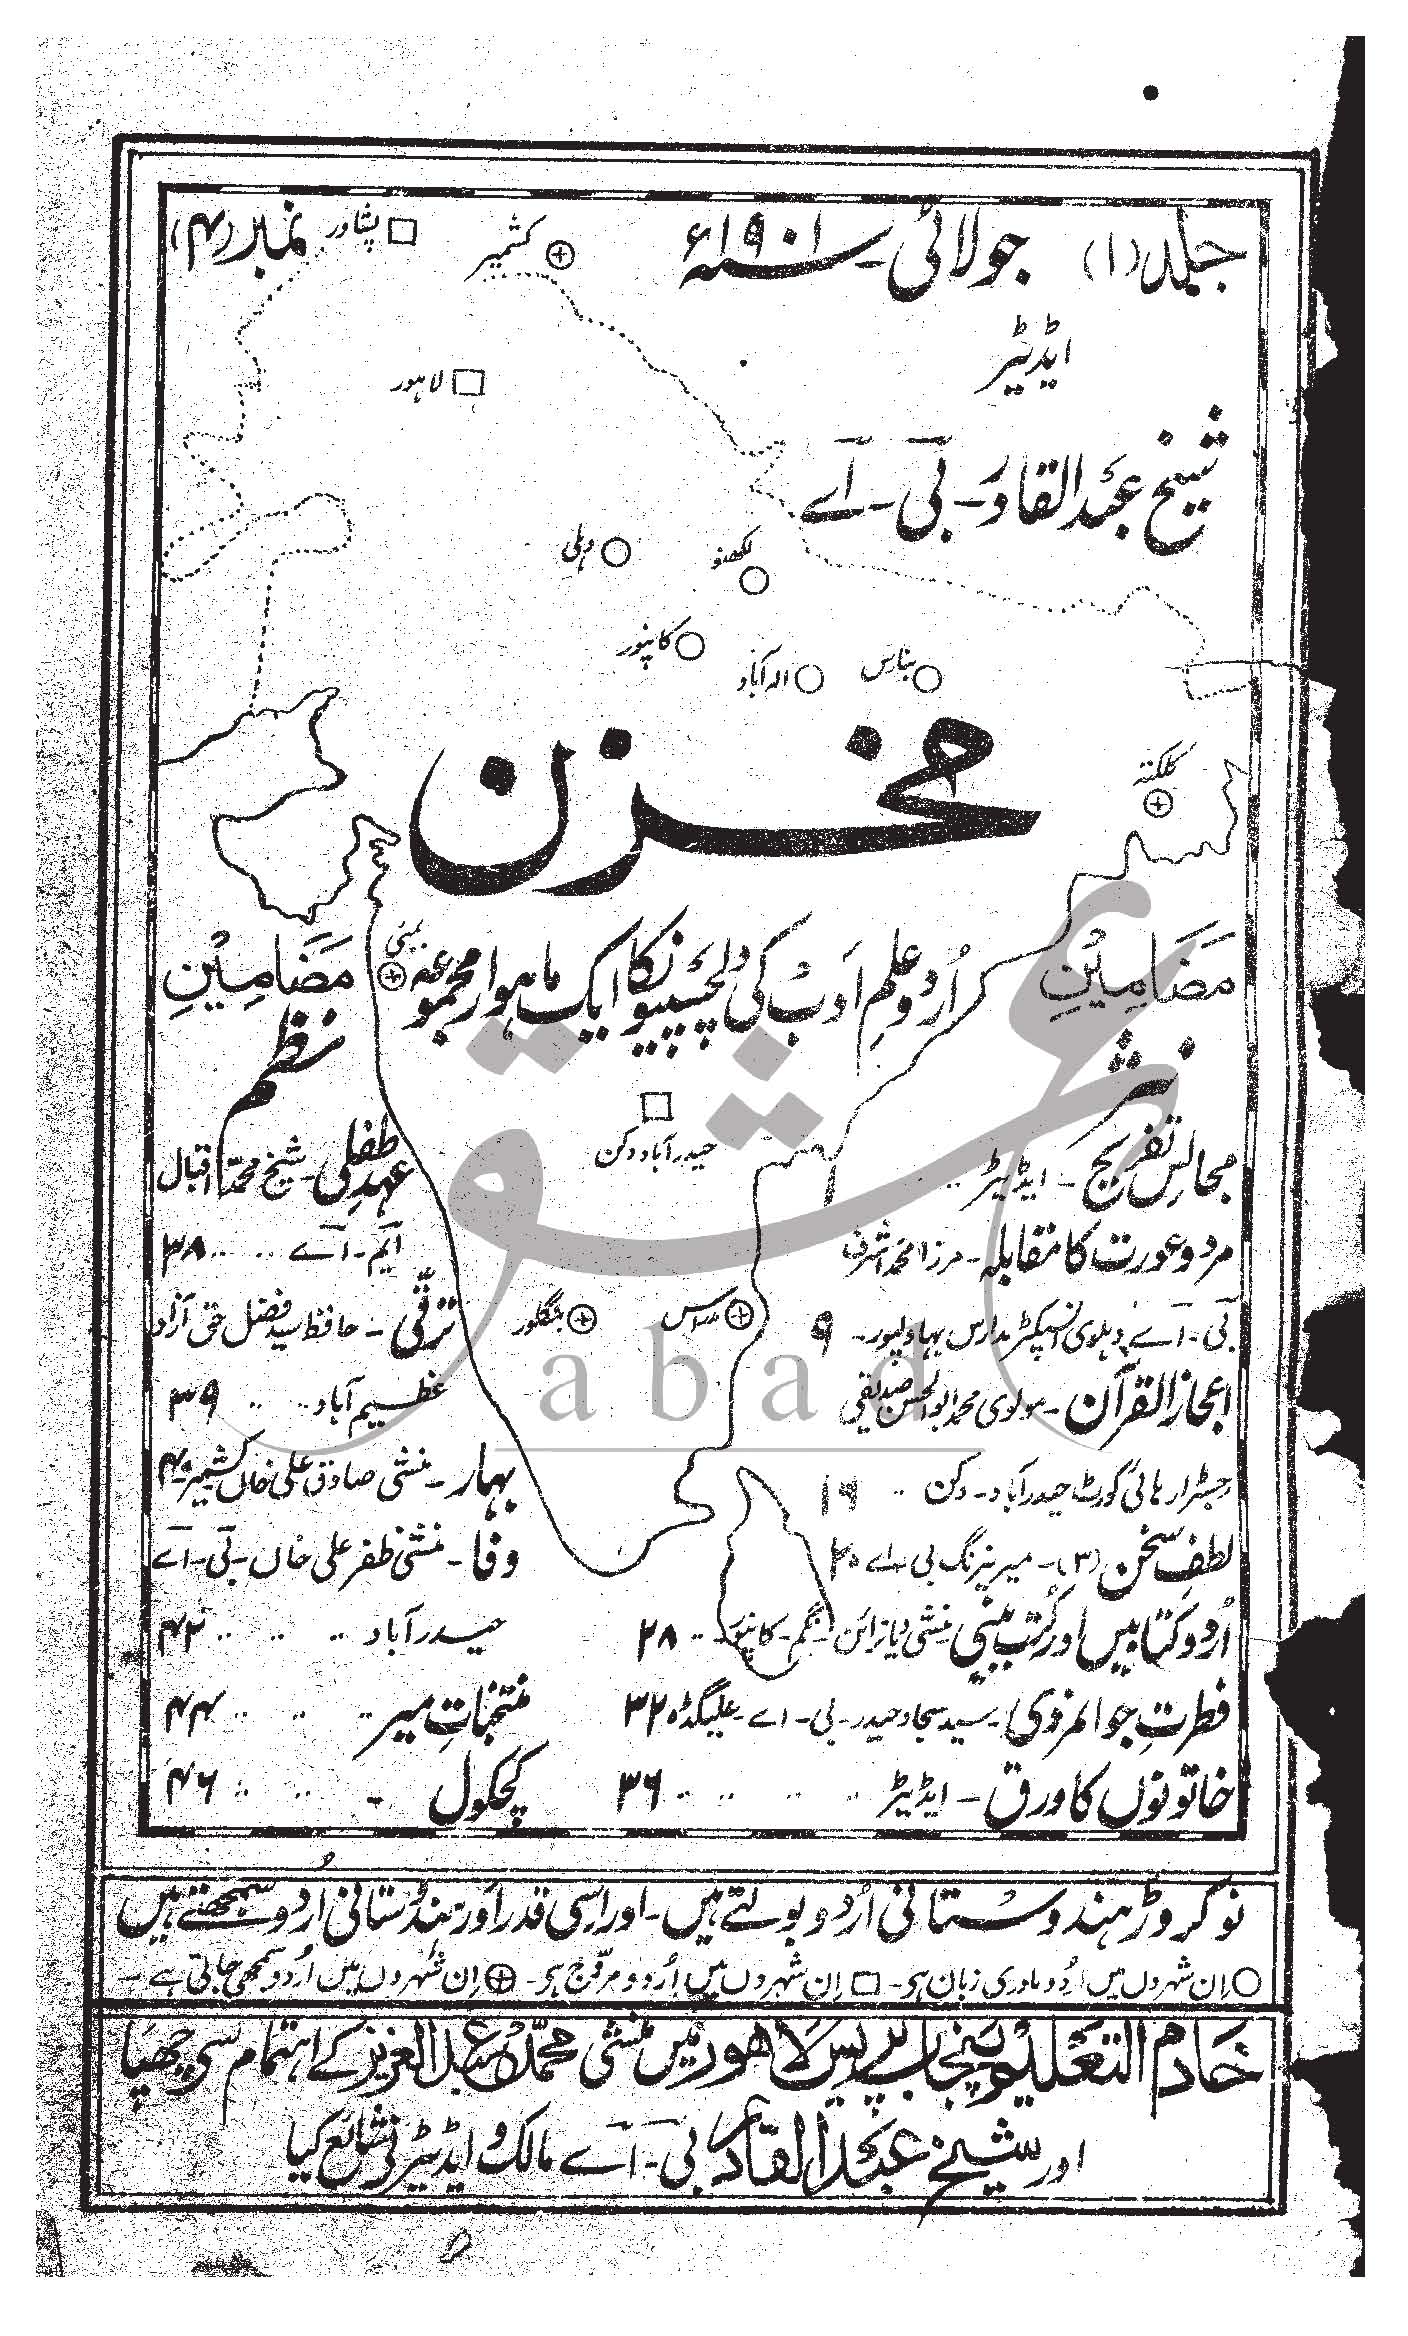 جلد (۱) جولائی ۔ سنہ ۱۹۰۱ء نمبر (۴)
پشاور
کشمیر
ایڈیٹر
لاہور
شیخ عبدالقادر ۔ بی ۔ اے
دہلی
لکھنو
کانپور
الہ آباد
بنارس
مخزن
کلکتہ
بمبئی
اُردو علم ادب کی دلچسپیونکا ایک ماہوار مجموعہ
حیدرآباد دکن
مدراس
بنگلور
مضامین
نثر
مجالس تفریح ۔ ایڈیٹر
مرد و عورت کا مقابلہ ۔ مرزا محمد اشرف
بی ۔ اے ۔ دہلوی انسپکٹر مدارس بہاولپور ۔ ۹
اعجاز القرآن ۔ مولوی محمد ابوالحسن صدیقی
رجسٹرار ہائی کورٹ حیدرآباد ۔ دکن ۱۶
لطفِ سخن (۳) ۔ میر نیرنگ بی ۔ اے ۲۰
اُردو کتابیں اور کتب بینی منشی دیا نرائن ۔ نگم ۔ کانپور ۲۸
فطرتِ جوانمردی ۔ سید سجاد حیدر ۔ بی ۔ اے ۔ علیگڈہ ۳۲
خاتونوں کا ورق ۔ ایڈیٹر ۳۶
مضامین
نظم
عہدِ طفلی ۔ شیخ محمد اقبال
ایم ۔ اے ۳۸
ترقّی ۔ حافظ سید فضل حق آزاد
عظیم آباد ۳۹
بہار ۔ منشی صادق علی خاں کشمیر ۴۰
وفا ۔ منشی ظفر علی خاں ۔ بی ۔ اے
حیدرآباد ۴۲
منتخباتِ میر ۴۴
کچکول ۴۶
نو کروڑ ہندوستانی اُردو بولتے ہیں ۔ اور اسی قدر اور ہندوستانی اُردو سمجھتے ہیں
اِن شہروں میں اُردو مادری زبان ہی ۔ اِن شہروں میں اُردو مروّج ہی ۔ اِن شہروں میں اُردو سمجھی جاتی ہے ۔
خادم التعلیم پنجاب پریس لاہور میں منشی محمد عبدالعزیز کے اہتمام سی چھپا
اور شیخ عبدالقادر بی ۔ اے مالک و ایڈیٹر نی شائع کیا
عشق
abad